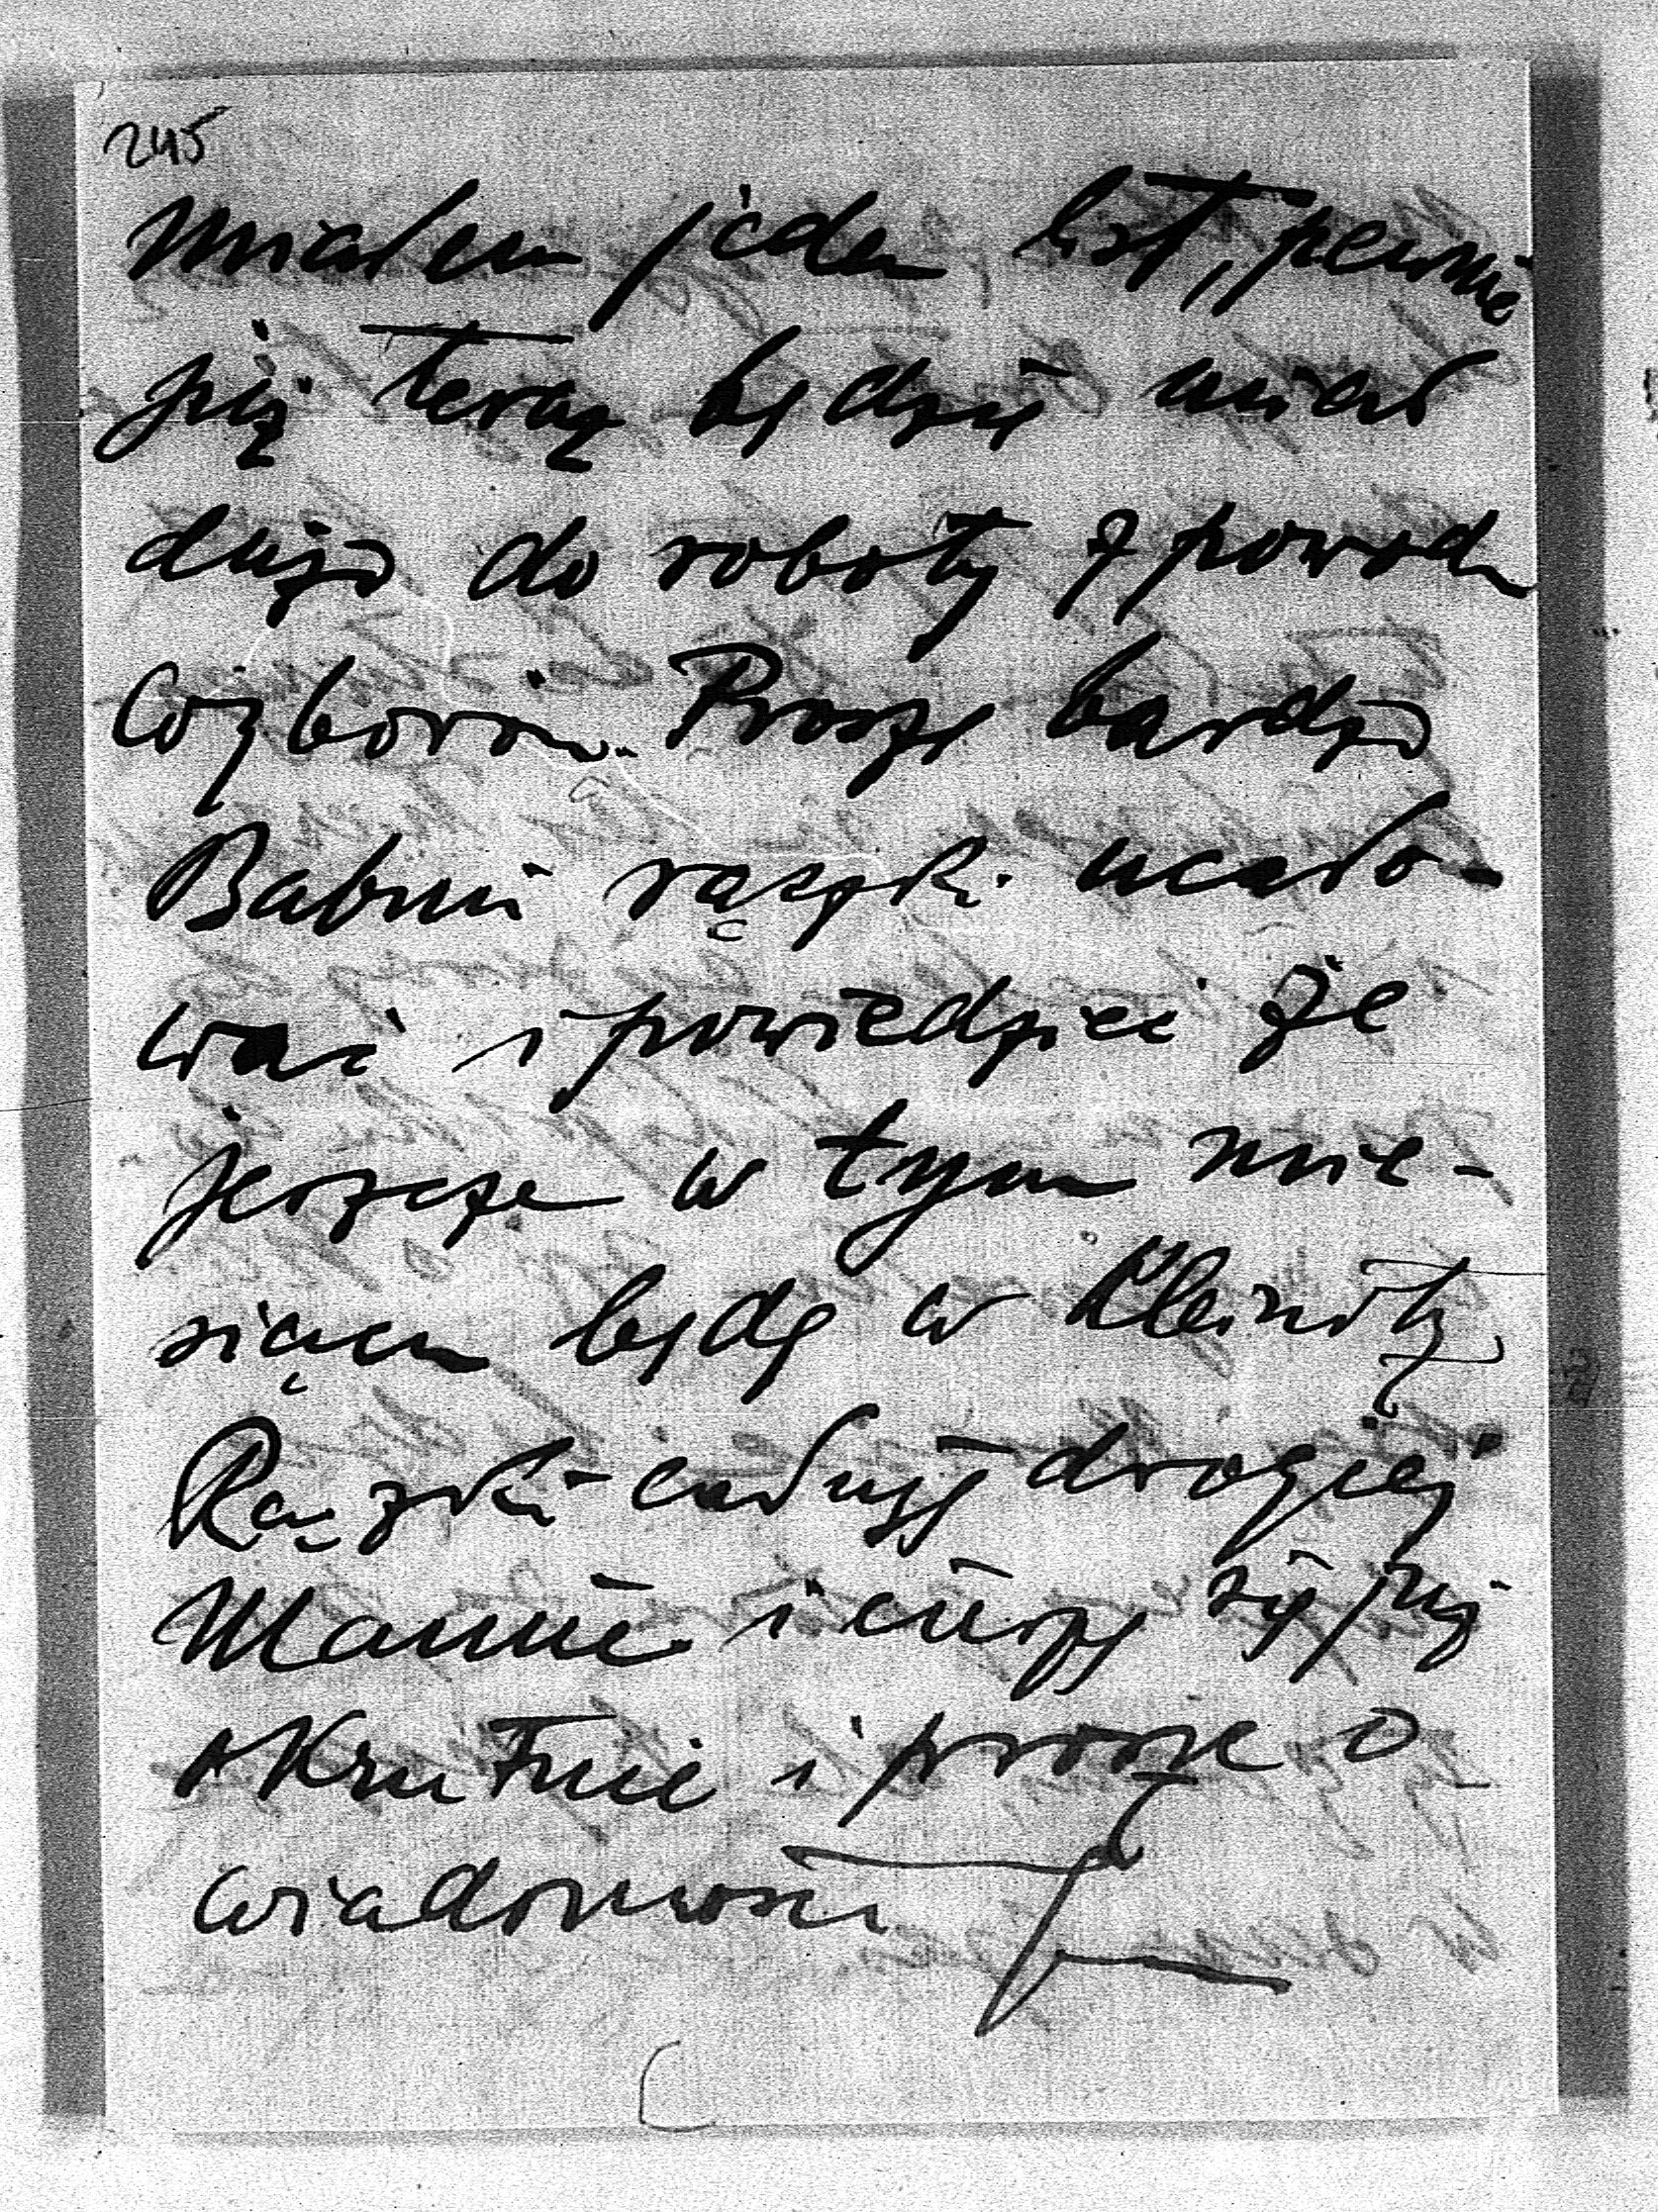 245
miałem jeden list, pewnie
już teraz będzie miał
dużo do roboty z powodu
wyborów. Proszę bardzo
Babuni rączki ucało-
wać i powiedzieć że
jeszcze w tym mie-
siącu będę w
Rączki całuję drogiej
Mamie i cieszę się już
okrutnie i proszę o
wiadomości